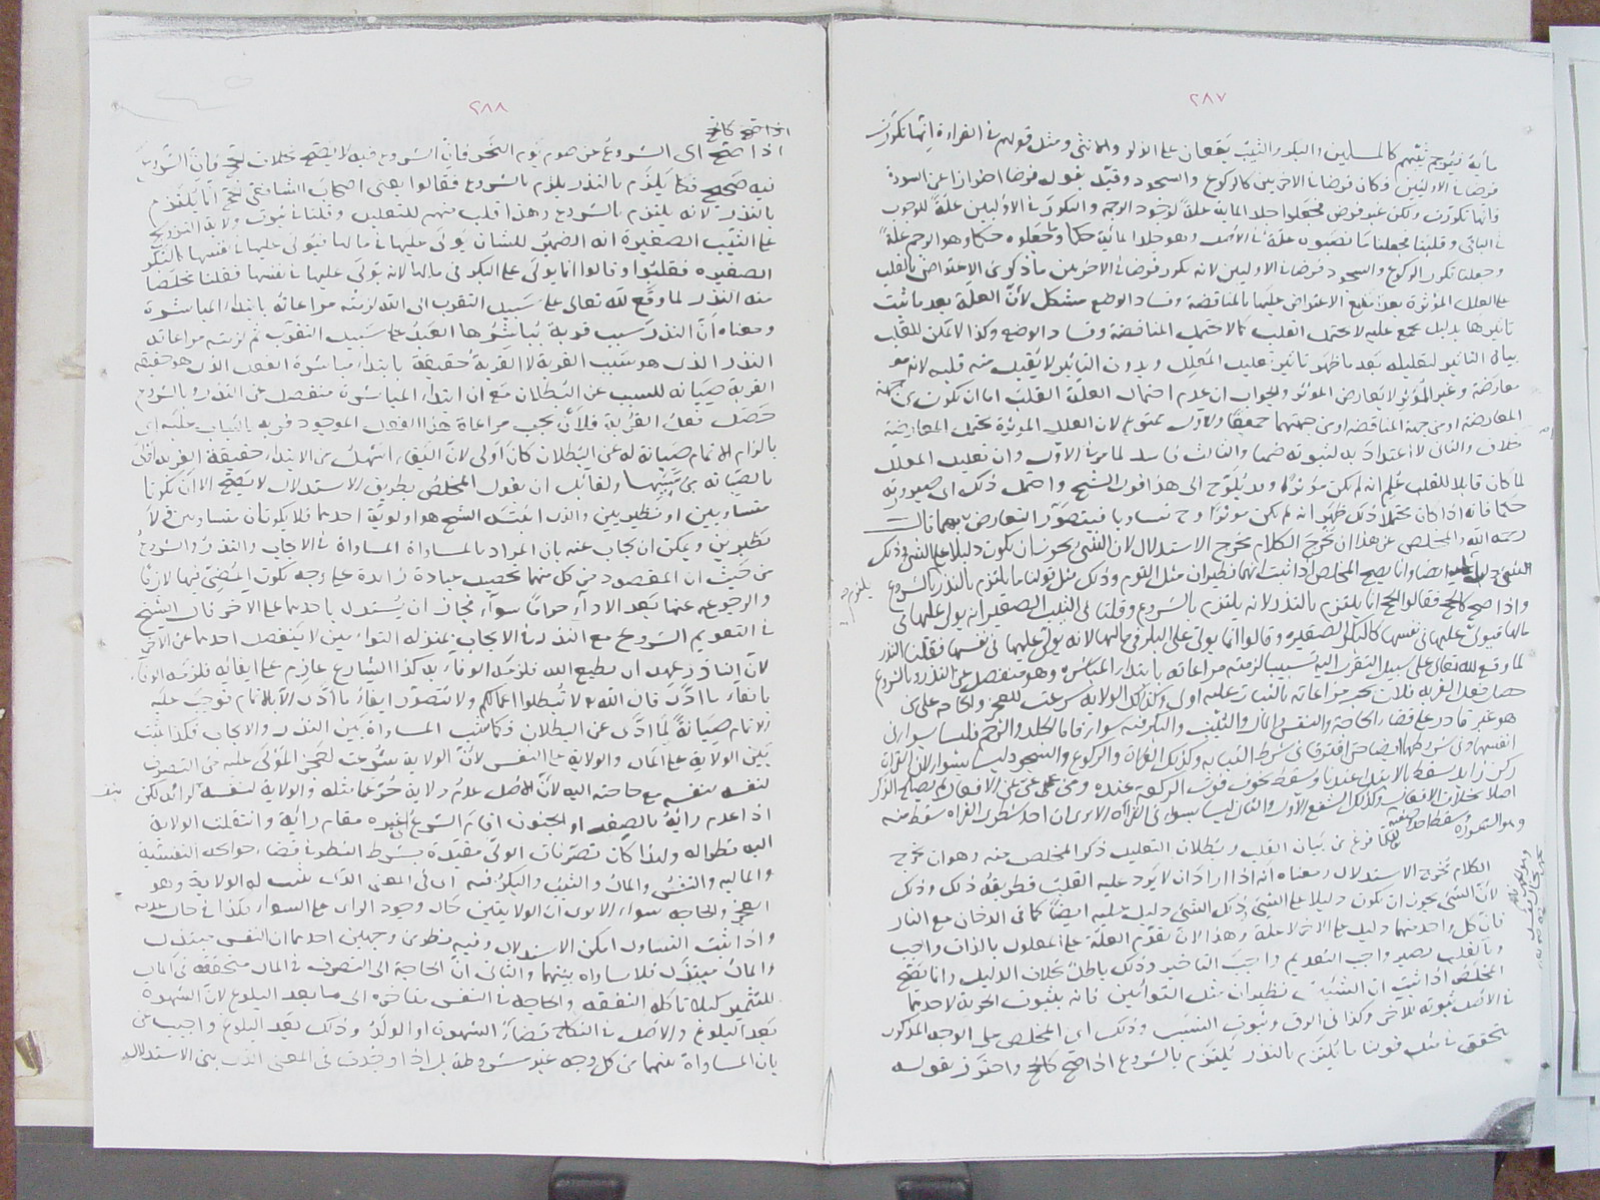 ٢٨٧
مأية فيرجم ثيبهم كالمسلمين والبكر والثيب يقعان على الذكر والانثى ومثل قولهم في القراءة انها تكررت
فرضا في الاوليين وكان فرضا في الاخريين كالركوع والسجود وقيد بقوله فرضا احترازا عن السورة
فانها تكررت ولكن غير فرض فجعلوا جلد المأية علة لوجود الرجم والتكرر في الاوليين علة للوجوب
في الباقي وقلبنا فجعلنا ما نصبوه علة في الاصل وهو جلد المأية حكما وما جعلوه حكما وهو الرجم علة
وجعلنا تكرر الركوع والسجود فرضا في الاوليين لانه تكرر فرضا في الاخريين ما ذكر في الاعتراض بالقلب
على العلل المؤثرة بعد الاعتراض عليها بالمناقضة وفساد الوضع مشكل لأن العلة بعد ما ثبت
تأثيرها بدليل مجمع عليه لا تحتمل القلب كما لا تحتمل المناقضة وفساد الوضع وكذا لا يمكن للقلب
بيان التأثير لتعليله بعد ما ظهر تأثير تعليل المعلل وبدون التأثير لا يقبل منه قلبه لانه معه
معارضة وغير المؤثر لا يعارض المؤثر والجواب ان عدم احتمال العلة القلب اما ان يكون من جهة
المعارضة او من جهة المناقضة او من جهتهما جميعا والاول ممنوع لان العلل المؤثرة تحتمل المعارضة
خلاف والثاني لا اعتداد به لثبوته ضمنا والثالث فاسد لما مر في الاول وان تعليل المعلل
لما كان قابلا للقلب علم انه لم يكن مؤثرا وقد يلوح الى هذا قول الشيخ واحتمل ذلك اى صيرورته
حكما فانه اذا كان محتملا ذلك ظهر انه لم يكن مؤثرا وح تساويا فيتصور التعارض بينهما قال
رحمه الله والمخلص عن هذا ان يخرج الكلام مخرج الاستدلال لان الشئ يجوز ان يكون دليلا على الشئ وذلك
الشئ دليلا عليه ايضا وانما يصح المخلص اذا ثبت انهما نظيران مثل التوم وذلك مثل قولنا ما يلتزم بالنذر يلتزم بالشروع
واذا صح كالحج فقالوا الحج انما يلتزم بالنذر لانه يلتزم بالشروع وقلنا في الثيب الصغيرة انه يولى عليها في
مالها فيولى عليها في نفسها كالبكر الصغيرة وقالوا انما يولى على البكر في مالها لانه يولى عليها في نفسها فقلنا النذر
لما وقع لله تعالى على سبيل التقرب اليه تسبيبا لزمته مراعاته بابتداء المباشرة وهو منفصل عن النذر وبالشروع
حصل فعل القربة فلان يجب مراعاته بالثبات عليه اولى وكذلك الولاية شرعت للعجز والحاجة على من
هو غير قادر على قضاء الحاجة والنفس والمال والثيب والبكر فيه سواء فاما الجلد والرجم فليسا بسواء في
انفسهما وفي شروطهما ايضا حتى افترقا في شرط الثيابة وكذلك القراءة والركوع والسجود ليسا بسواء لان القراءة
ركن زائد يسقط بالاقتداء عندنا ويسقط بخوف فوت الركعة عنده ومن عجز عن الافعال لم يصلح الذكر
اصلا بخلاف الافعال وكذلك الشفع الاول والثاني ليسا بسواء في القراءة الا يرى ان احد شطري القراءة سقط منه
وهو السورة ويسقط احد وصفيه فلما فرغ من بيان القلب وبطلان التعليل ذكر المخلص منه وهو ان يخرج
الكلام مخرج الاستدلال ومعناه انه اذا اراد ان لا يرد عليه القلب فطريقه ذلك وذلك
لأن الشئ يجوز ان يكون دليلا على الشئ وذلك الشئ دليل عليه ايضا كما في الدخان مع النار
فان كل واحد منهما دليل على الاخر لا علة وهذا لان تقدم العلة على المعلول بالذات واجب
وبالقلب يصير واجب التقديم واجب التأخير وذلك باطل بخلاف الدليل وانما يصح
المخلص اذا ثبت ان الشيئين نظيران مثل التوأمين فانه يثبت الحرية لاحدهما
في الاصل ثبوته للآخر وكذا في الرق وثبوت النسب وذلك اى المخلص على الوجه المذكور
يتحقق في مثل قولنا ما يلتزم بالنذر يلتزم بالشروع اذا صح كالحج واحترز بقوله
٢٨٨
اذا صح كالحج
اذا صح اى الشروع عن صوم يوم النحر فان الشروع فيه لا يصح بخلاف الحج فان الشروع
فيه صحيح فكما يلزم بالنذر يلزم بالشروع فقالوا يعنى اصحاب الشافعى الحج انما يلتزم
بالنذر لانه يلتزم بالشروع وهذا قلب منهم للتعليل وقلنا في ثبوت ولاية التزويج
على الثيب الصغيرة انه الضمير للشان يولى عليها في مالها فيولى عليها في نفسها كالبكر
الصغيرة فقلبوا وقالوا انما يولى على البكر في مالها لانه يولى عليها في نفسها فقلنا مخلصا
منه النذر لما وقع لله تعالى على سبيل التقرب الى الله لزمته مراعاته بابتداء المباشرة
ومعناه ان النذر سبب قربة يباشرها العبد على سبيل التقرب ثم لزمته مراعاته
النذر الذى هو سبب القربة لا القربة حقيقة بابتداء مباشرة الفعل الذى هو حقيقة
القربة صيانة للسبب عن البطلان مع ان ابتداء المباشرة منفصل عن النذر وبالشروع
حصل فعل القربة فلأن يجب مراعاة هذا الفعل الموجود قربة بالثبات عليه اى
بالزام الاتمام صيانة له عن البطلان كان اولى لان البقاء اسهل من الابتداء حقيقة القربة اولى
بالصيانة من سببها ولقائل ان يقول المخلص بطريق الاستدلال لا يصح الا ان يكونا
متساويين او نظيرين والذى اثبته الشيخ هو اولوية احدهما فلا يكونان متساويين ولا
نظيرين ويمكن ان يجاب عنه بان المراد بالمساواة المساواة في الايجاب والنذر والشروع
من حيث ان المقصود من كل منهما تحصيل عبادة زائدة على وجه يكون المضى فيها لازما
والرجوع عنها بعد الاداء حراما سواء فجاز ان يستدل باحدهما على الآخر قال الشيخ
في التقويم الشروع مع النذر في الايجاب بمنزلة التوأمين لا ينفصل احدهما عن الآخر
لان الناذر عهد ان يطيع الله فلزمه الوفاء به كذا الشارع عازم على ايفائه فلزمه الوفاء
بابقاء ما ادى قال الله لا تبطلوا اعمالكم ولا يتصور ابقاء ما ادى الا بالاتمام فوجب عليه
الاتمام صيانة لما ادى عن البطلان فكما ثبت المساواة بين النذر والايجاب فكذا ثبت
بين الولاية على المال والولاية على النفس لأن الولاية شرعت لعجز المولى عليه عن التصرف
لنفسه بنفسه مع حاجته اليه لأن الاصل عدم ولاية حر على مثله والولاية لنفسه لرائه لكن
اذا عدم رائه بالصغر او الجنون اقام الشرع رأى غيره مقام رائه وانتقلت الولاية
اليه نظرا له ولهذا كان تصرفات الولى مقيدة بشرط النظر في قضاء حوائجه النفسية
والمالية والنفس والمال والثيب والبكر فيه اى في المعنى الذى بنيت له الولاية وهو
العجز والحاجة سواء الا يرى ان الولايتين حال وجود الراى على السواء فكذا في حال عدمه
واذا ثبت التساوى امكن الاستدلال وفيه نظر من وجهين احدهما ان النفس مبتذل
والمال مبتذل فلا مساواة بينهما والثانى ان الحاجة الى التصرف في المال متحققة في الحال
للتثمير كيلا تأكله النفقة والحاجة في النفس متأخرة الى ما بعد البلوغ لان الشهوة
بعد البلوغ والاصل في النكاح قضاء الشهوة او الولد وذلك بعد البلوغ واجيب عن
بان المساواة بينهما من كل وجه غير مشروطة بل اذا وجدت في المعنى الذى بنى الاستدلال